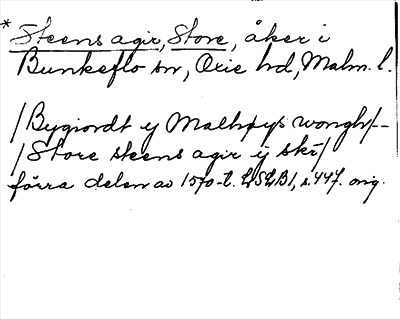 * Steens agir, Store, åker i
Bunkeflo sn, Oxie hd, Malm. l.
/Bygiordt ÿ Malhøys wongh/--
/Store steens agir ÿ skr/
förra delen av 1570-t. LSLB1, s. 447. orig.